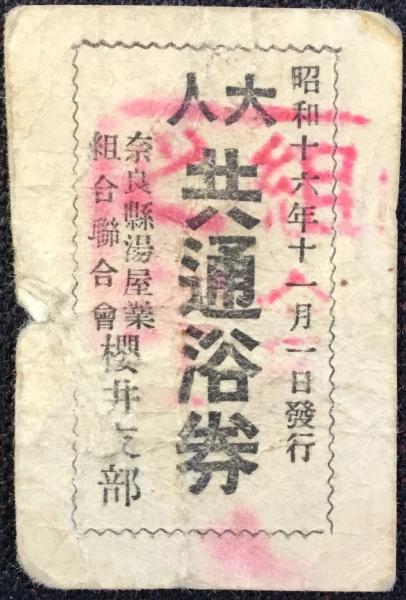 昭和十六年十一月一日發行
大人
共通浴劵
奈良縣湯屋業
組合聯合會
櫻井支部